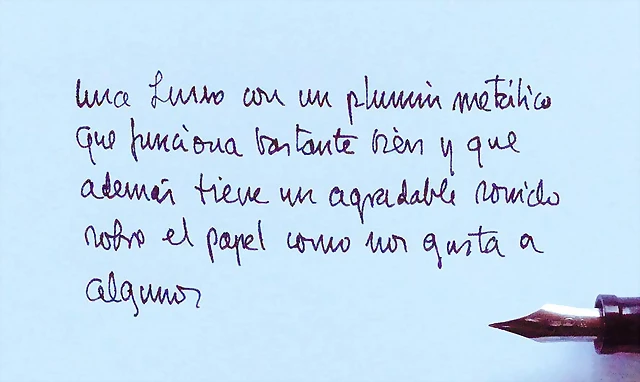 una Lusso con un plumin metálico
que funciona bastante bien y que
además tiene un agradable sonido
sobre el papel como nos gusta a
algunos